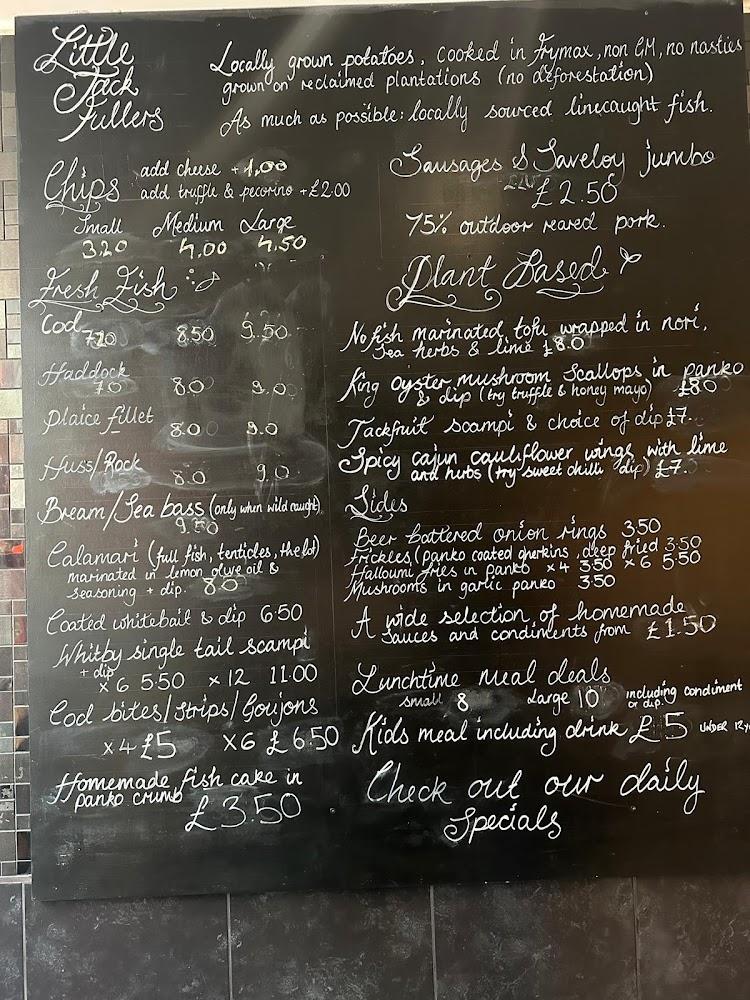 Little
Jack
Fullers
Locally grown potatoes, cooked in Frymax, non GM, no nasties
grown on reclaimed plantations (no deforestation)
As much as possible: locally sourced linecaught fish.
Chips add cheese +1.00
add truffle & pecorino +£2.00
Small Medium Large
3.20 4.00 4.50
Fresh Fish
Cod 7.20 8.50 9.50
Haddock
7.0 8.0 9.0
Plaice fillet
8.0 9.0
Huss/Rock
8.0 9.0
Bream/Sea bass (only when wild caught)
9.50
Calamari (full fish, tenticles, the lot)
marinated in lemon, olive oil &
seasoning + dip. 8.0
Coated whitebait & dip 6.50
Whitby single tail scampi
+ dip
x 6 5.50 x 12 11.00
Cod bites/Strips/Goujons
x 4 £5 x 6 £6.50
Homemade fish cake in
panko crumb
£3.50
Sausages & Saveloy jumbo
£2.50
75% outdoor reared pork.
Plant Based
No fish marinated tofu wrapped in nori,
Sea herbs & lime £8.0
King Oyster mushroom Scallops in panko
& dip (try truffle & honey mayo) £8.0
Jackfruit scampi & choice of dip £7.
Spicy cajun cauliflower wings with lime
and herbs (try sweet chilli dip) £7.
Sides
Beer battered onion rings 3.50
Frickles (panko coated gherkins, deep fried 3.50
Halloumi fries in panko x 4 3.50 x 6 5.50
Mushrooms in garlic panko 3.50
A wide selection of homemade
sauces and condiments from £1.50
Lunchtime meal deals
small 8 Large 10 including condiment
or dip.
Kids meal including drink £5 UNDER 12
Check out our daily
Specials